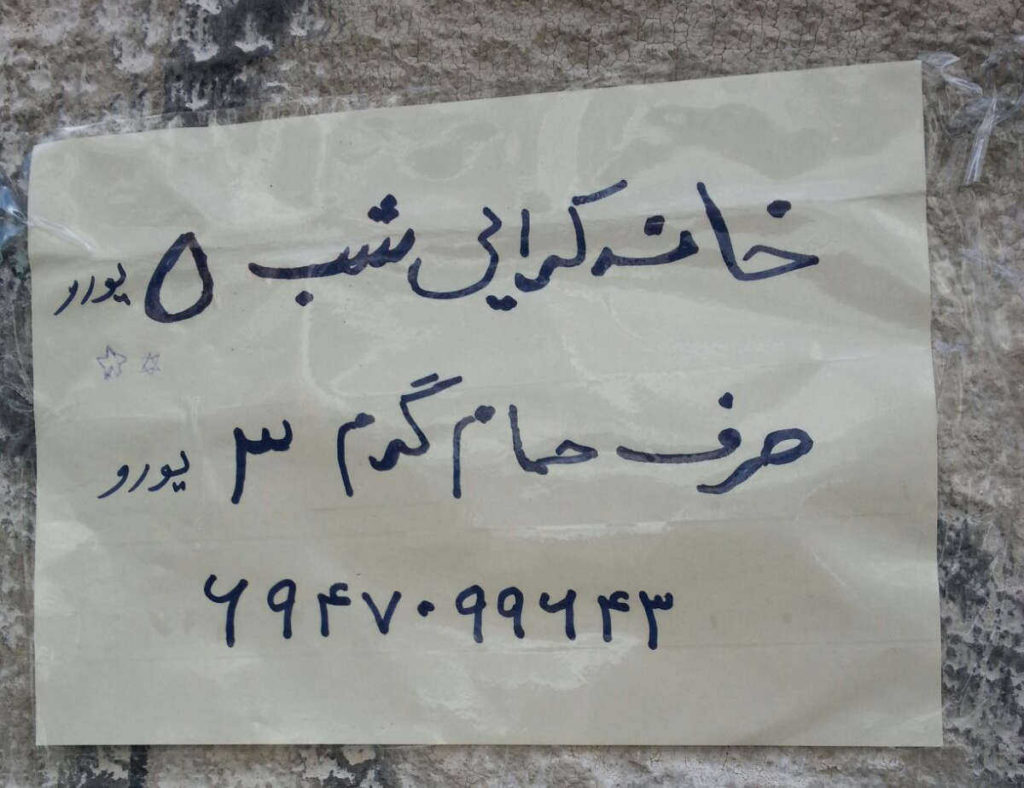 خانه کرایی شب ۵ یورو
صرف حمام گرم ۳ یورو
۶۹۴۷۰۹۹۶۴۳